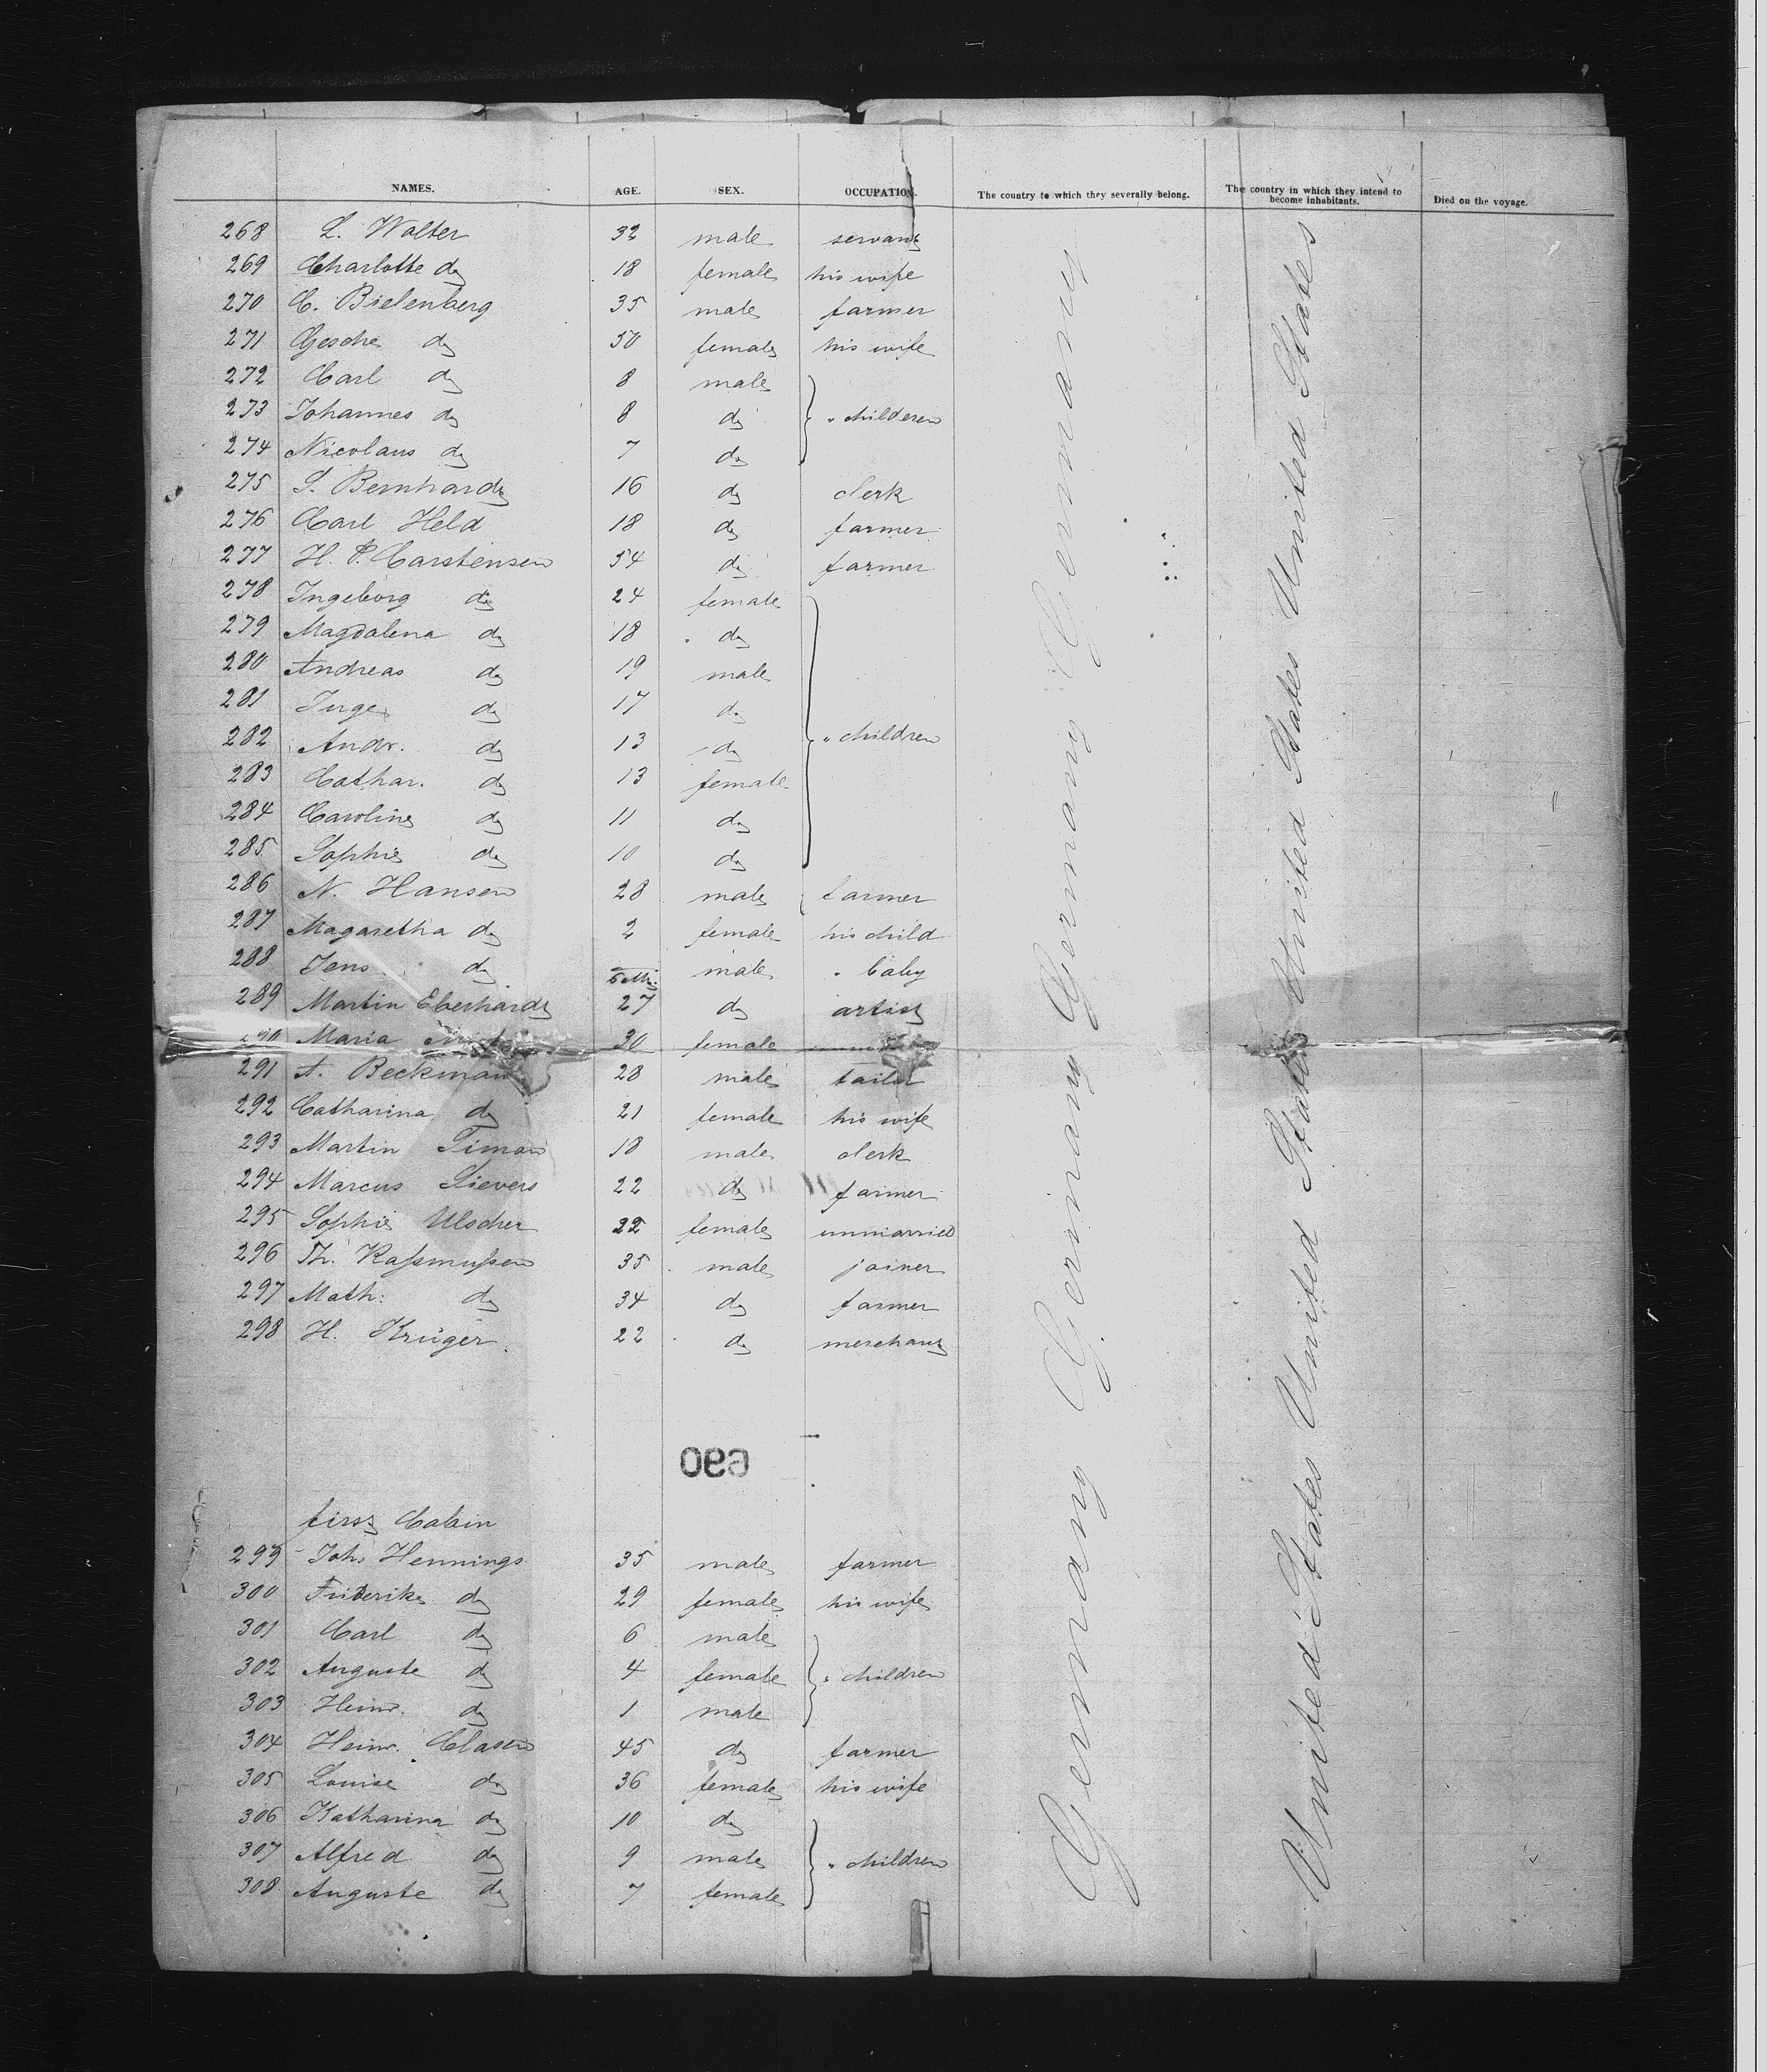 NAMES. AGE. SEX. OCCUPATION. The country to which they severally belong. The country in which they intend to become inhabitants. Died on the voyage.
268 L. Wolter 32 male servant
269 Charlotte do 18 female his wife
270 C. Bielenberg 35 male farmer
271 Gesche do 50 female his wife
272 Carl do 8 male
273 Johannes do 8 do " childeren
274 Nicolaus do 7 do
275 S. Bernhardt 16 do clerk
276 Carl Held 18 do farmer
277 H. P. Carstensen 54 do farmer
278 Ingeborg do 24 female
279 Magdalena do 18 do
280 Andreas do 19 male
281 Inge do 17 do
282 Andr. do 13 do " children
283 Cathar. do 13 female
284 Caroline do 11 do
285 Sophie do 10 do
286 N. Hansen 28 male farmer
287 Magaretha do 2 female his child
288 Jens do 6 M. male " baby
289 Martin Eberhardt 27 do artist
290 Maria 30 female
291 A. Beckman 28 male tailor
292 Catharina do 21 female his wife
293 Martin Timan 18 male clerk
294 Marcus Sievers 22 do farmer
295 Sophie Ulscher 22 female unmarried
296 Th. Raſsmuſsen 35 male joiner
297 Math: do 34 do farmer
298 H. Krüger. 22 do merchant
690
first Cabin
299 Joh. Hennings 35 male farmer
300 Friderike do 29 female his wife
301 Carl do 6 male
302 Auguste do 4 female " children
303 Heinr. do 1 male
304 Heinr. Clasen 45 do farmer
305 Louise do 36 female his wife
306 Katharina do 10 do
307 Alfred do 9 male " children
308 Auguste do 7 female
Germany Germany Germany Germany
United States United States United States United States